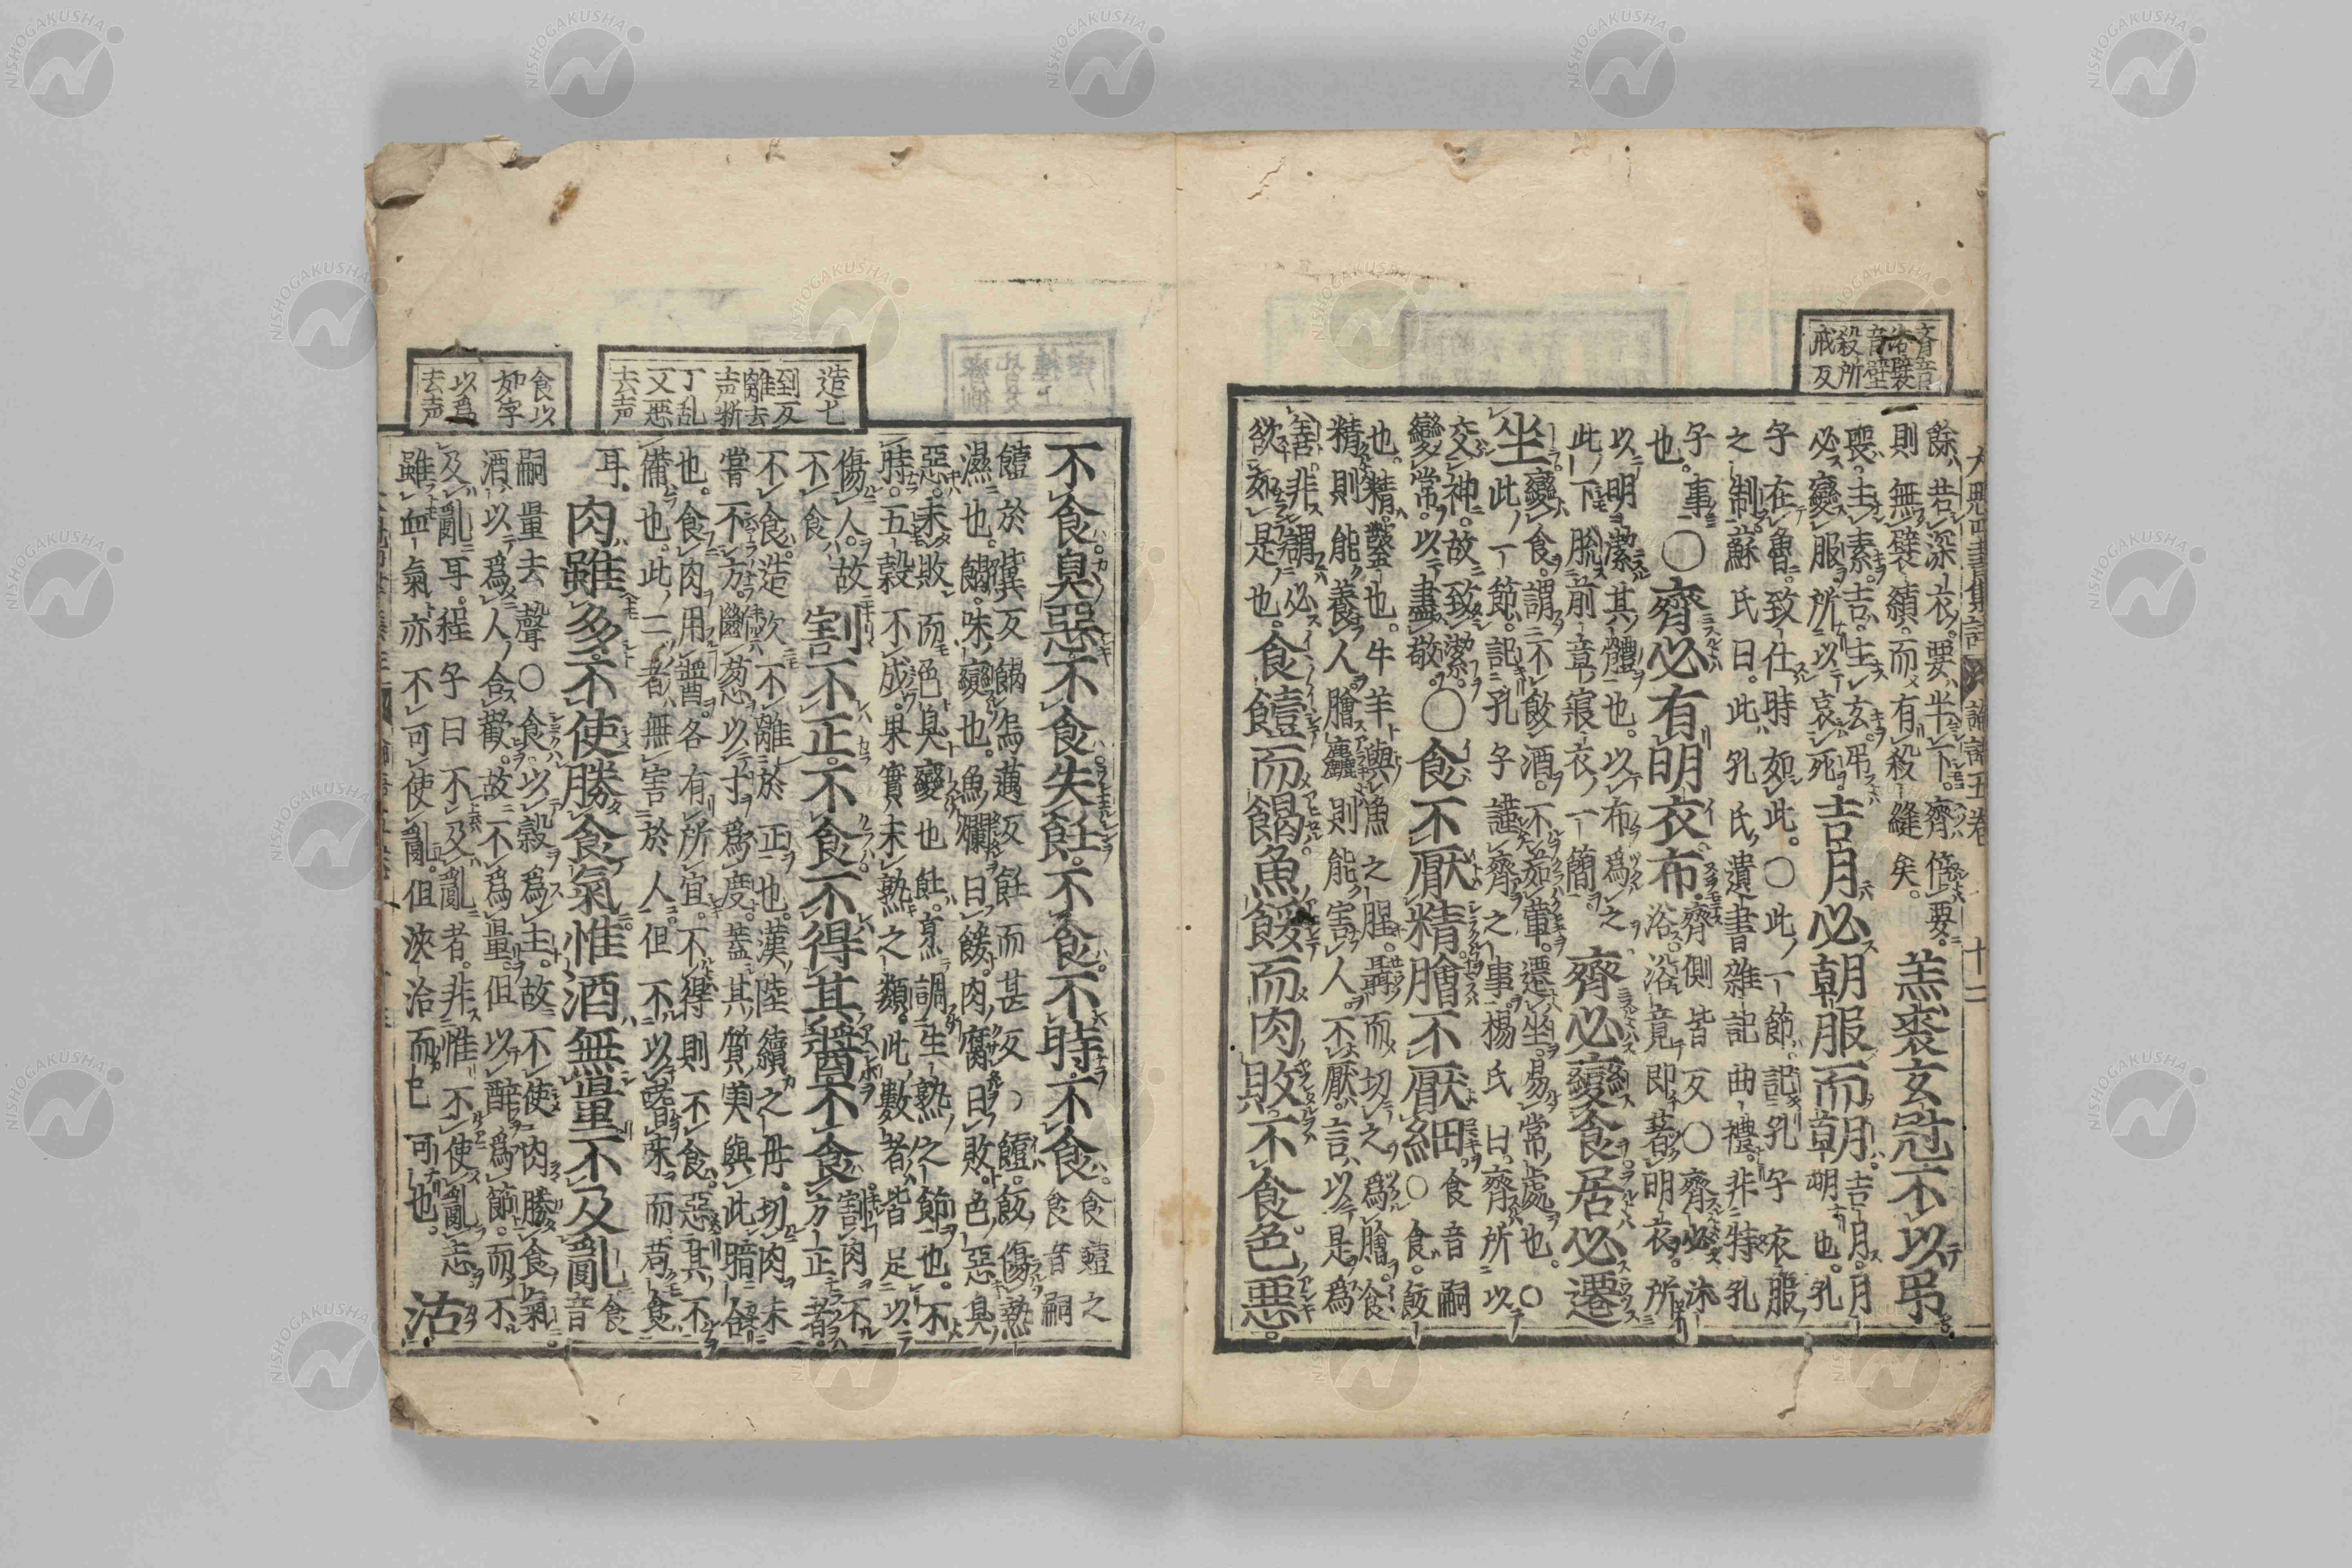 齊音
咨襞
音壁
殺所
戒反
論語五卷 十二
餘若深衣要半下。齊倍要。
則無襞績。而有殺縫矣。
羔裘玄冠不以弔
喪主素。吉主玄。弔
必變服所以哀死。
吉月必朝服而朝
吉月。月
朔也。孔
子在魯。致仕時如此。○此一節。記孔子衣服
之制。蘇氏曰。此孔氏遺書雜記曲禮。非特孔
子事
也。
○齊必有明衣布。
齊側皆反○齊必沐
浴。浴竟即著明衣。所
以明潔其體也。以布爲之
此下脫前章寢衣一簡。
齊必變食居必遷
坐
變食。謂不飲酒。不茹葷。遷坐。易常處也。○
此一節。記孔子謹齊之事。楊氏曰。齊所以
交神。故致潔。
變常。以盡敬。
○食不厭精膾不厭細。
食音嗣
○食。飯
也。精。鑿也。牛羊與魚之腥。聶而切之爲膾。食
精則能養人。膾麤則能害人。不厭。言以是爲
善。非謂必
欲如是也。
食饐而餲魚餒而肉敗。不食。色惡。
不食臭惡不食失飪。不食。不時。不食。
食饐之
食音嗣
饐於冀反餲烏邁反飪而甚反○饐。飯傷熱
濕也。餲。味變也。魚爛曰餒。肉腐曰敗。色惡臭
惡。未敗而色臭變也飪。烹調生熟之節也。不
時。五穀不成。果實未熟之類。此數者。皆足以
傷人。故
不食
割不正。不食不得其醬不食
割肉不
方正者。
不食。造次不離於正也。漢陸續之母。切肉未
嘗不方。斷葱以寸爲度。蓋其質美與此暗合
也。食肉用醬。各有所宜。不得則不食。惡其不
備也。此二者無害於人。但不以嗜味而苟食
耳。
肉雖多。不使勝食氣惟酒無量不及亂
食
音
嗣量去聲○食。以穀爲主。故不使肉勝食氣。
酒以爲人合歡。故不爲量。但以醉爲節。而不
及亂耳。程子曰不及亂者。非惟不使亂志
雖血氣亦不可使亂。但浹洽而已可也。
沽
造七
到反
離去
声斷
丁乱
又惡
去声
食以
如字
以爲
去声